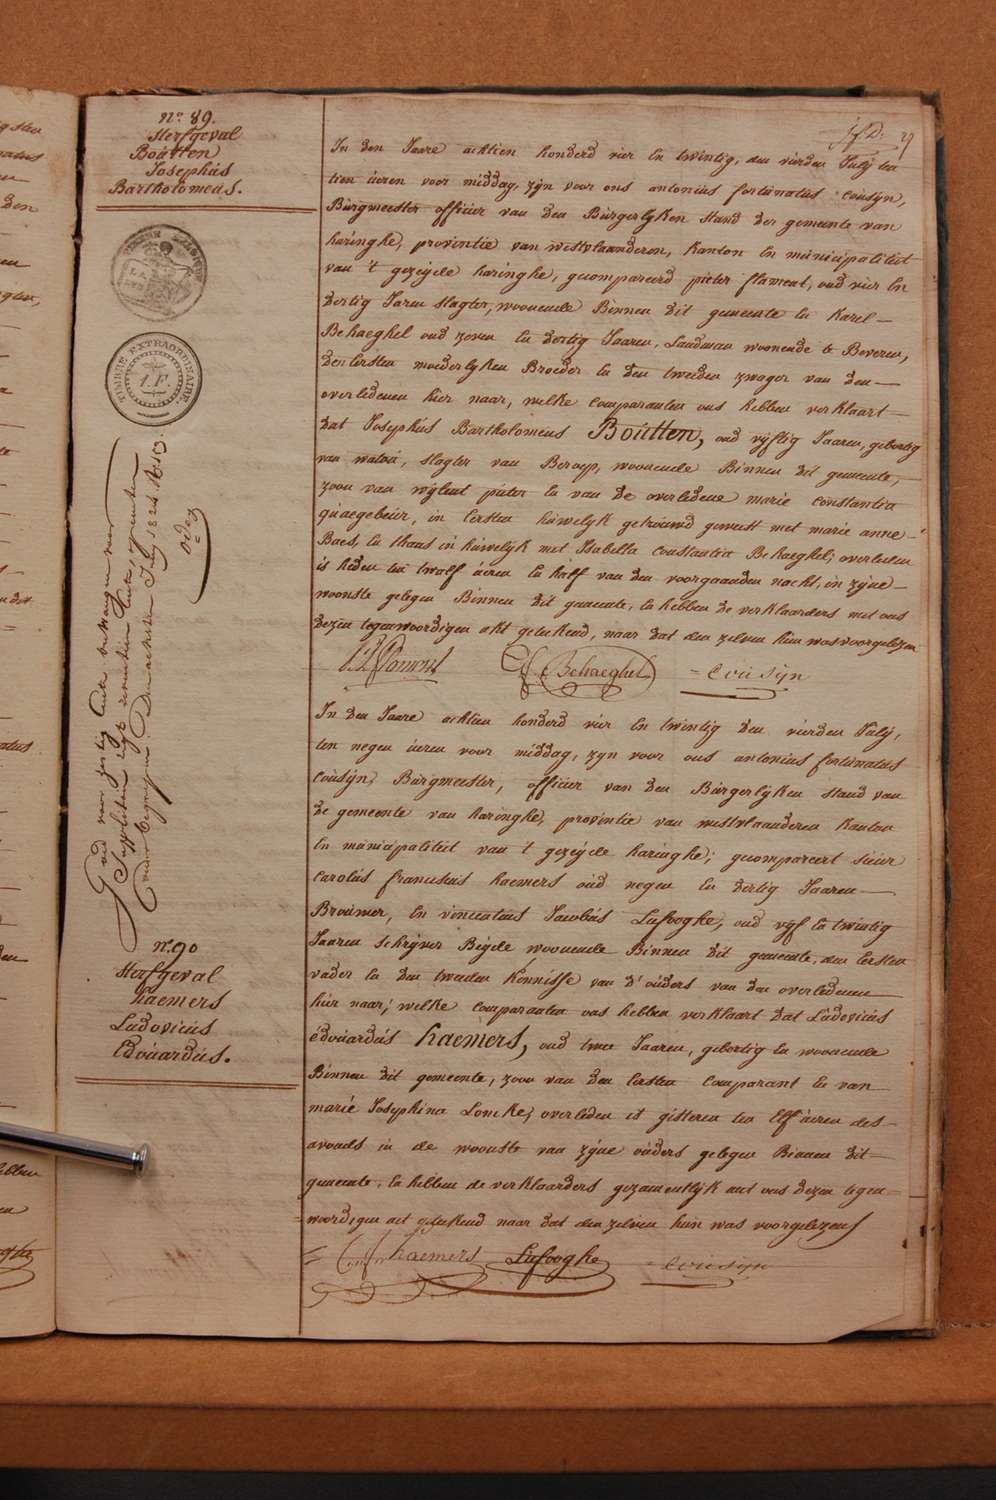 nº 89.
Sterfgeval
Boútten
Josephús
Bartholomeús.
TIMBRE EXTRAORDINAIRE.
1. F.
nº 90
Sterfgeval
haemers
Ludovicús
Edoúardús.
In den Jaare achtien honderd vier en twintig, den vierden July ten
tien úeren voor middag, zÿn voor ons antonius fortúnatús coúsÿn,
Búrgmeester officier van den Búrgerlÿken stand der gemeente van
haringhe, provintie van westvlaanderen, kanton en múnicipaliteit
van 't gezeÿde haringhe, gecompareerd pieter flament, oud vier en
dertig Jaren slagter, woonende Binnen dit gemeente en karel
Behaeghel oud zeven en dertig Jaaren, Landman woonende te Beveren,
den eersten moederlÿken Broeder en den tweeden zwager van den
overledenen hier naar, welke comparanten ons hebben verklaart
dat Josephús Bartholomeús Boútten, oud vÿftig Jaaren, geboortig
van watoú, slagter van Beroep, woonende Binnen dit gemeente,
zoon van wÿlent pieter en van de overledene marie constantia
qúaegebeúr, in eersten húwelÿk getroúwd geweest met marie anne
Baes, en thans in húwelÿk met Isabella constantia Behaeghel; overleden
is heden ten twalf úeren en half van den voorgaanden nacht, in zÿne
woonste gelegen Binnen dit gemeente, en hebben de verklaarders met ons
dezen tegenwoordigen akt geteekend, naar dat den zelven hún was voorgelezen
Behaeghel = coúsÿn
In den Jaare achtien honderd vier en twintig den vierden Julÿ,
ten negen úeren voor middag, zÿn voor ons antonius fortúnatús
coúsÿn, Búrgmeester, officier van den Búrgerlÿken stand van
de gemeente van haringhe, provintie van westvlaanderen kanton
en múnicipaliteit van 't gezeÿde haringhe; gecompareert sieúr
carolús franciscús haemers oúd negen en dertig Jaaren
Broúwer, en vincentiús Jacobús Lafooghe, oud vÿf en twintig
Jaaren schrÿver Beÿde woonende Binnen dit gemeente, den eersten
vader en den tweeden kennisse van d'oúders van den overledenen
hier naar; welke comparanten ons hebben verklaart dat Lúdovicús
édoúardús haemers, oud twee Jaaren, geboortig en woonende
Binnen dit gemeente, zoon van den eersten comparant en van
marie Josephina Loncke; overleden is gisteren ten elf úeren des
avonds in de woonste van zÿne oúders gelegen Binnen dit
gemeente, en hebben de verklaarders gezamentlÿk met ons dezen tegen=
woordigen act geteekend naar dat den zelven hún was voorgelezen
haemers Lafooghe = coúsÿn